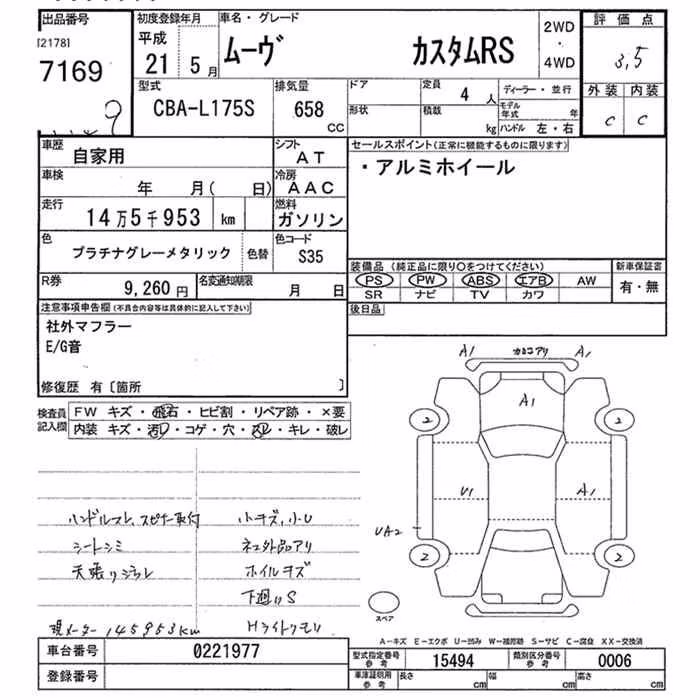 出品番号
[2178]
7169
9
初度登録年月
平成
21 5月
車名・グレード
ムーヴ カスタムRS
2WD
・
4WD
評価点
3,5
外装 内装
C C
型式
CBA-L175S
排気量
658
CC
ドア
形状
定員
4人
積載
kg
ディーラー・並行
モデル年式 年
ハンドル 左・右
車歴
自家用
シフト
AT
車検
年 月( 日)
冷房
AAC
走行
14万5千953 km
燃料
ガソリン
色
プラチナグレーメタリック
色替
色コード
S35
R券
9,260円
名変通知期限
月 日
セールスポイント(正常に機能するものに限ります)
・アルミホイール
装備品(純正品に限り○をつけてください)
PS PW ABS エアB AW
SR ナビ TV カワ
新車保証書
有・無
後日品
注意事項申告欄(不具合内容等は具体的に記入して下さい)
社外マフラー
E/G音
修復歴 有〔箇所 〕
検査員
記入欄
FW キズ・飛石・ヒビ割・リペア跡・×要
内装 キズ・汚レ・コゲ・穴・スレ・キレ・破レ
ハンドルスレ、スピナー取付
シートシミ
天張りジラレ
現メーター 145953km
小キズ,小U
ネコ外品アリ
ホイルキズ
下廻りS
Hライトクモリ
A1
A1
A1
2
2
U1
A1
UA2
2
2
スペア
A−キズ E−エクボ U−凹み W−補修跡 S−サビ C−腐食 XX−交換済
車台番号
0221977
登録番号
型式指定番号
参考
15494
類別区分番号
参考
0006
車庫証明用
参考
長さ cm
幅 cm
高さ cm